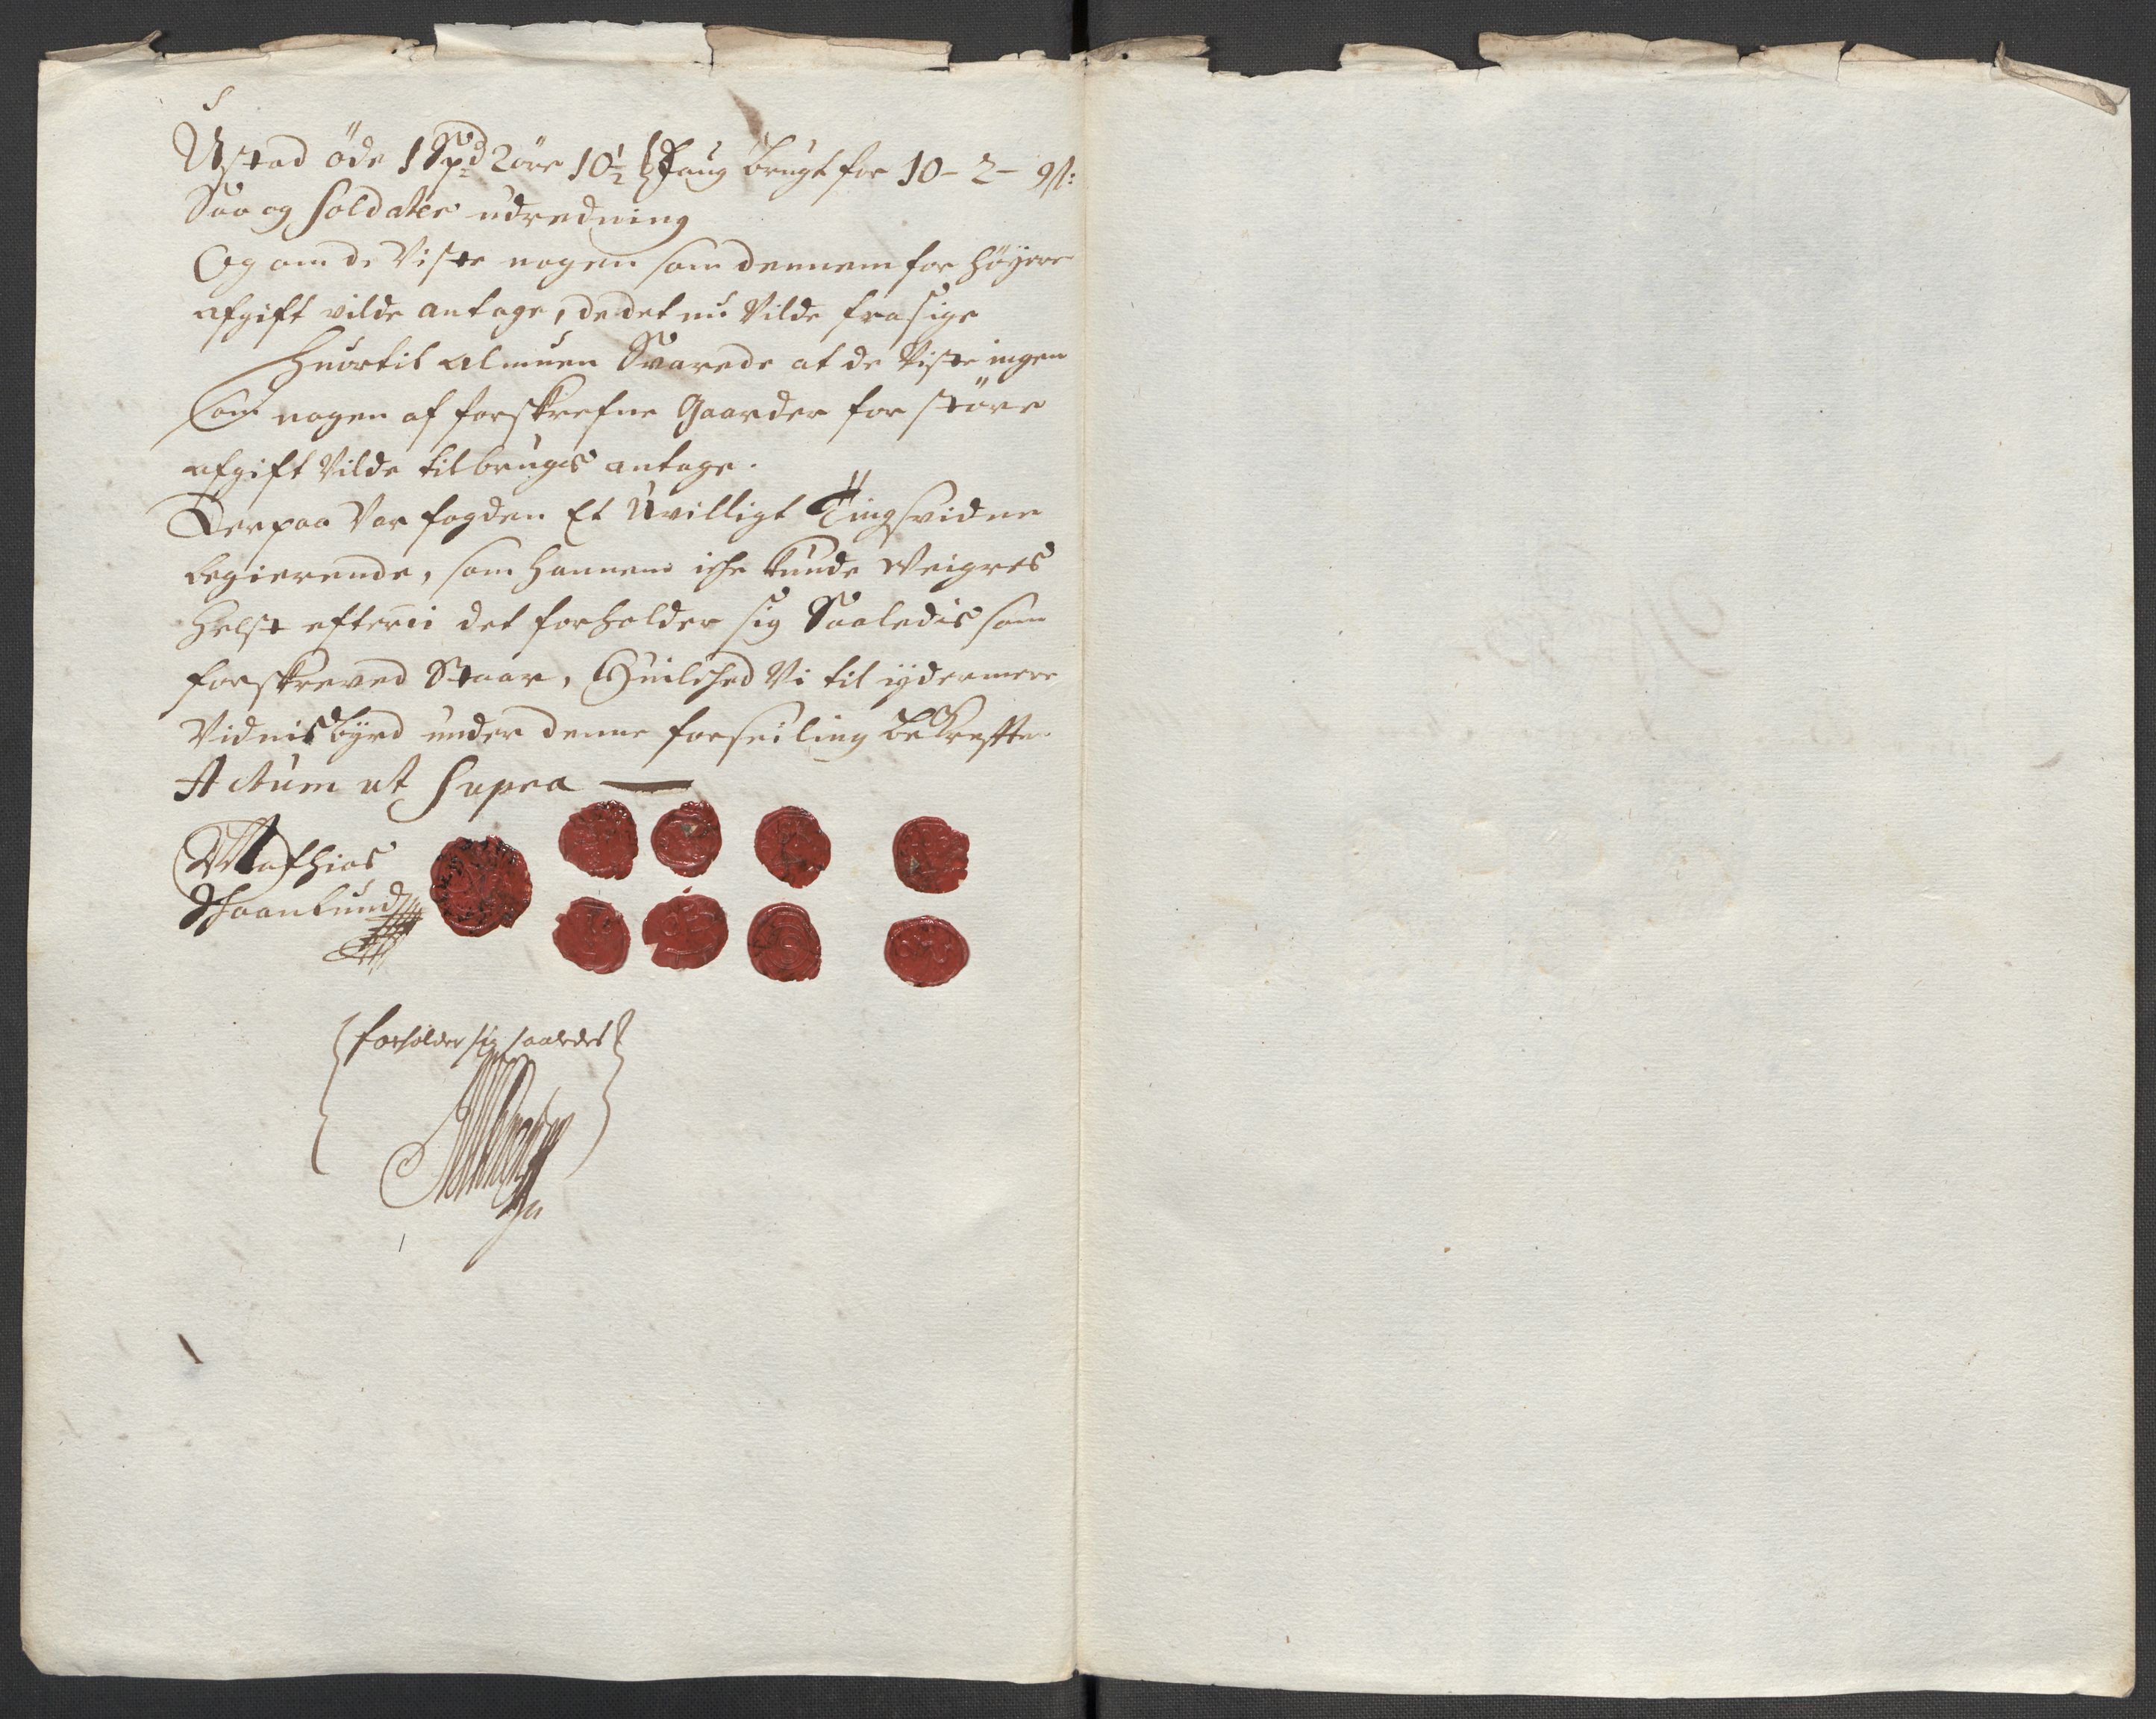 Ustad öde 1 Spd 2 öre 10½ brugt for 10 - 2 - 9 s:
Saa og soldater udredning
Og om de Viste nogen som dennem for höyere
afgift vilde antage, de det nu Vilde frasige
Huortil Almuen Svarede at de Viste ingen
Som nogen af forskrefne Gaarder for störe
afgift Vilde til brugs antage.
Derpaa Var fogden Et Uvilligt Tingsvidne
begierende, som hannem iche kunde Weigres
Helst efterii det forholder sig Saaledis som
forskreved Staar, Huilched Vi til ydermere
Vidnisbyrd under denne forseiling bekreffter
Actum ut Supra
Mathias
Schaanlund
forholder sig saaledes